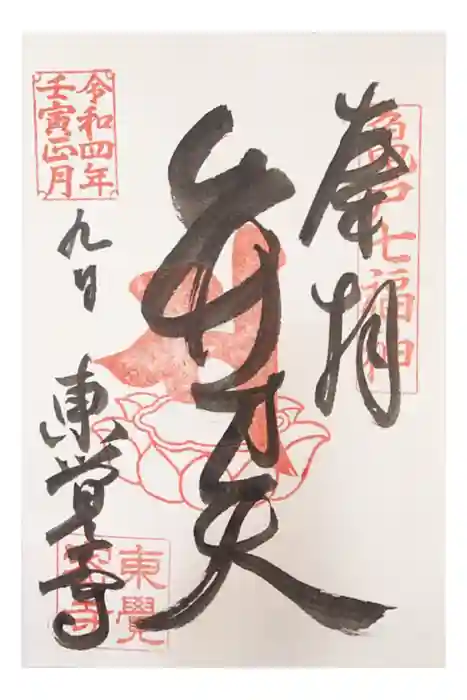 奉拝
亀戸七福神
弁才天
令和四年
壬寅正月
九日
東覚寺
東覺
寺